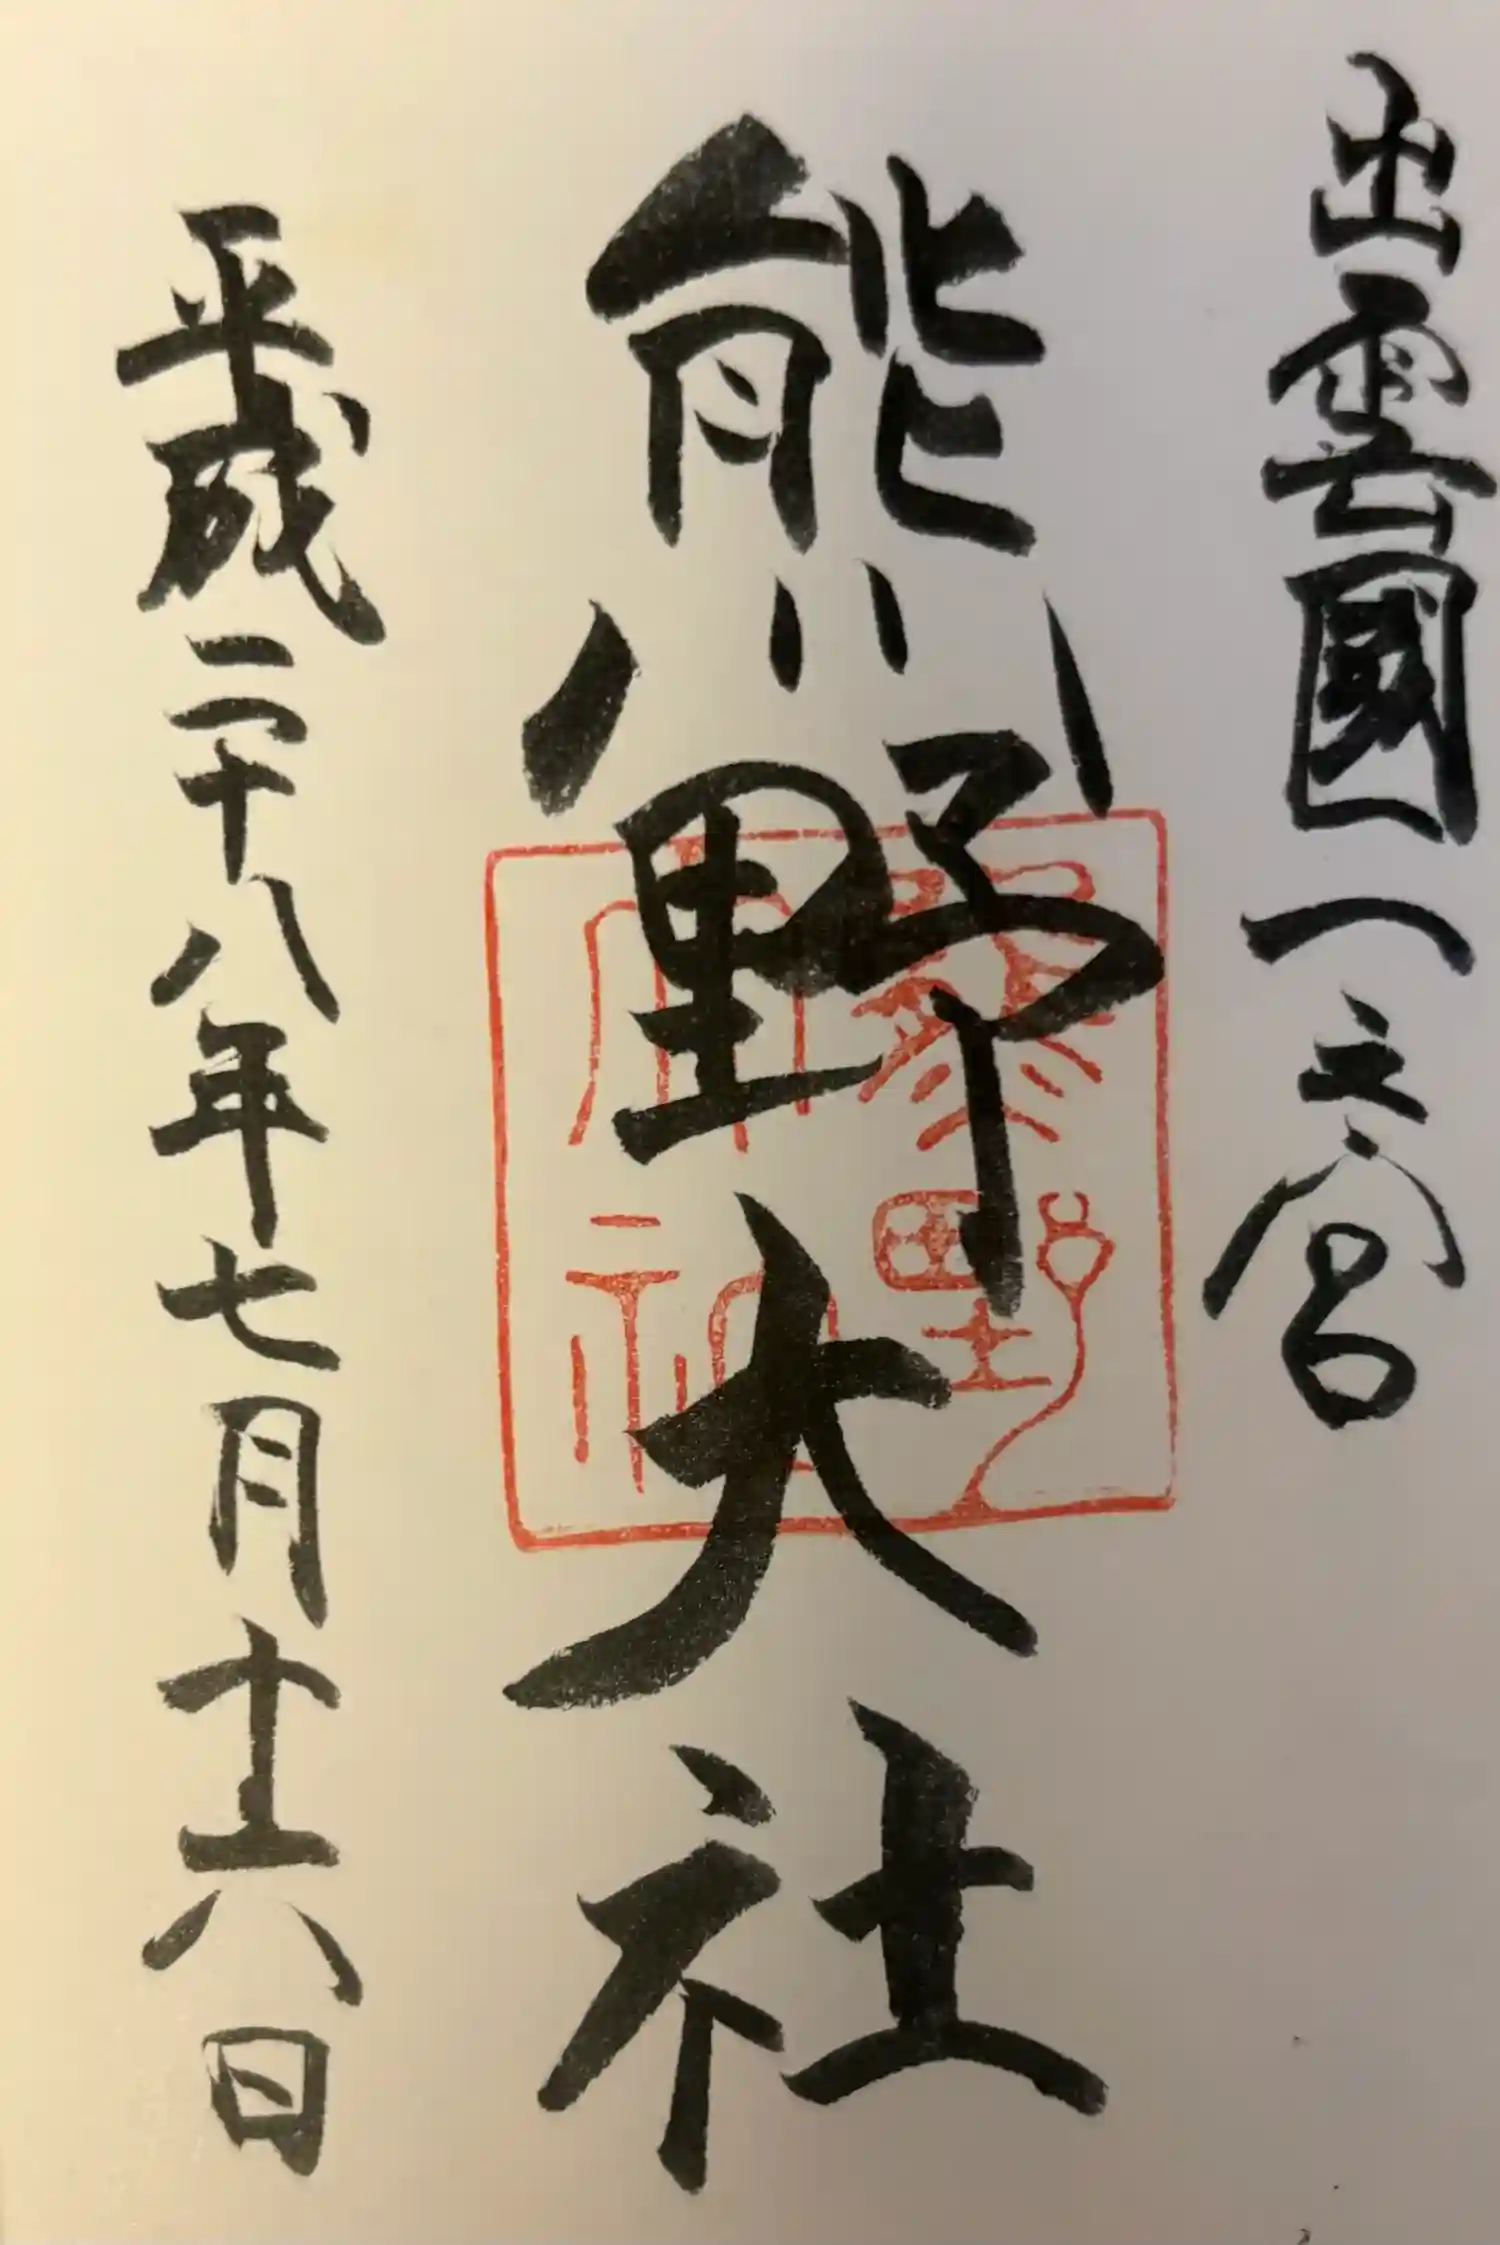 出雲國一之宮
熊野大社
熊野
大社
平成二十八年七月十六日